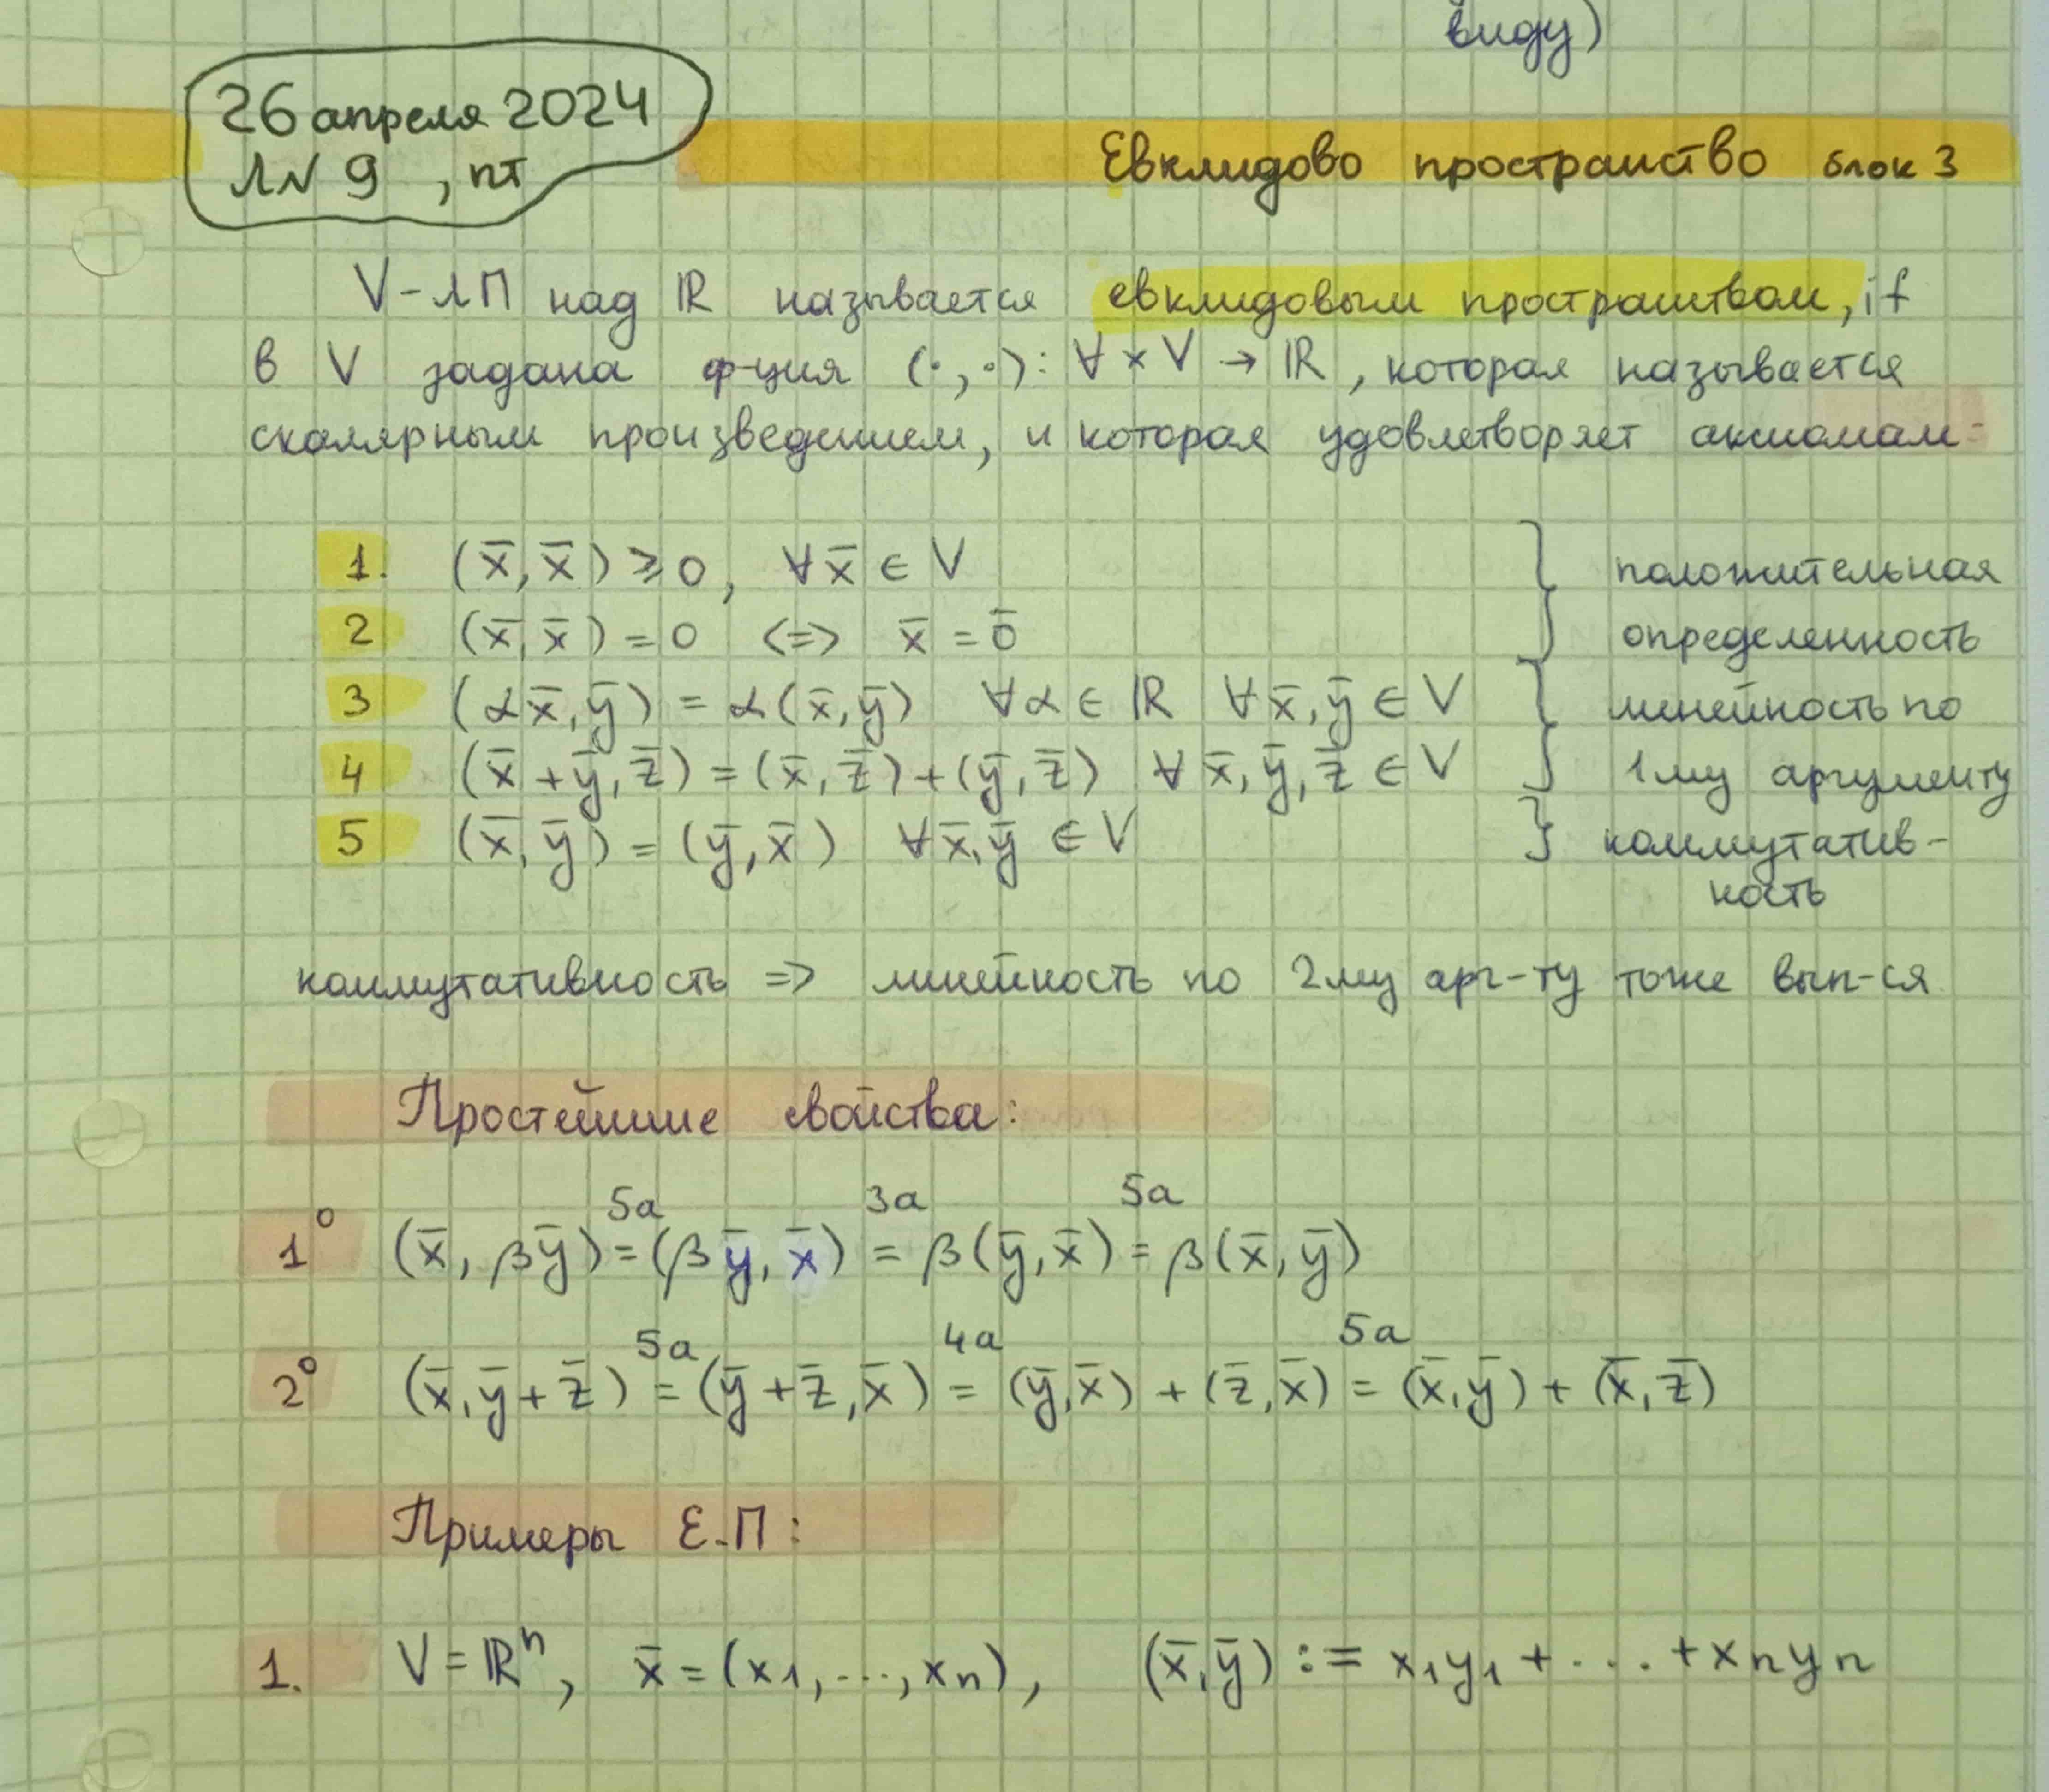 виду)
26 апреля 2024
Л№ 9 , пт
Евклидово пространство блок 3
V-ЛП над ℝ называется евклидовым пространством, if
в V задана ф-ция (·,·): ∀ × V → ℝ, которая называется
скалярным произведением, и которая удовлетворяет аксиомам:
1. (x̄, x̄) ⩾ 0, ∀x̄ ∈ V } положительная
2 (x̄, x̄) = 0 <=> x̄ = 0̄ определенность
3 (αx̄, ȳ) = α(x̄, ȳ) ∀α ∈ ℝ ∀x̄, ȳ ∈ V } линейность по
4 (x̄ + ȳ, z̄) = (x̄, z̄) + (ȳ, z̄) ∀ x̄, ȳ, z̄ ∈ V 1му аргументу
5 (x̄, ȳ) = (ȳ, x̄) ∀x̄, ȳ ∈ V } коммутатив-
ность
коммутативность => линейность по 2му арг-ту тоже вып-ся
Простейшие свойства:
5а 3а 5а
1° (x̄, βȳ) = (βȳ, x̄) = β(ȳ, x̄) = β(x̄, ȳ)
5а 4а 5а
2° (x̄, ȳ + z̄) = (ȳ + z̄, x̄) = (ȳ, x̄) + (z̄, x̄) = (x̄, ȳ) + (x̄, z̄)
Примеры Е.П:
1. V = ℝⁿ, x̄ = (x₁, ..., xₙ), (x̄, ȳ) := x₁y₁ + ... + xₙyₙ